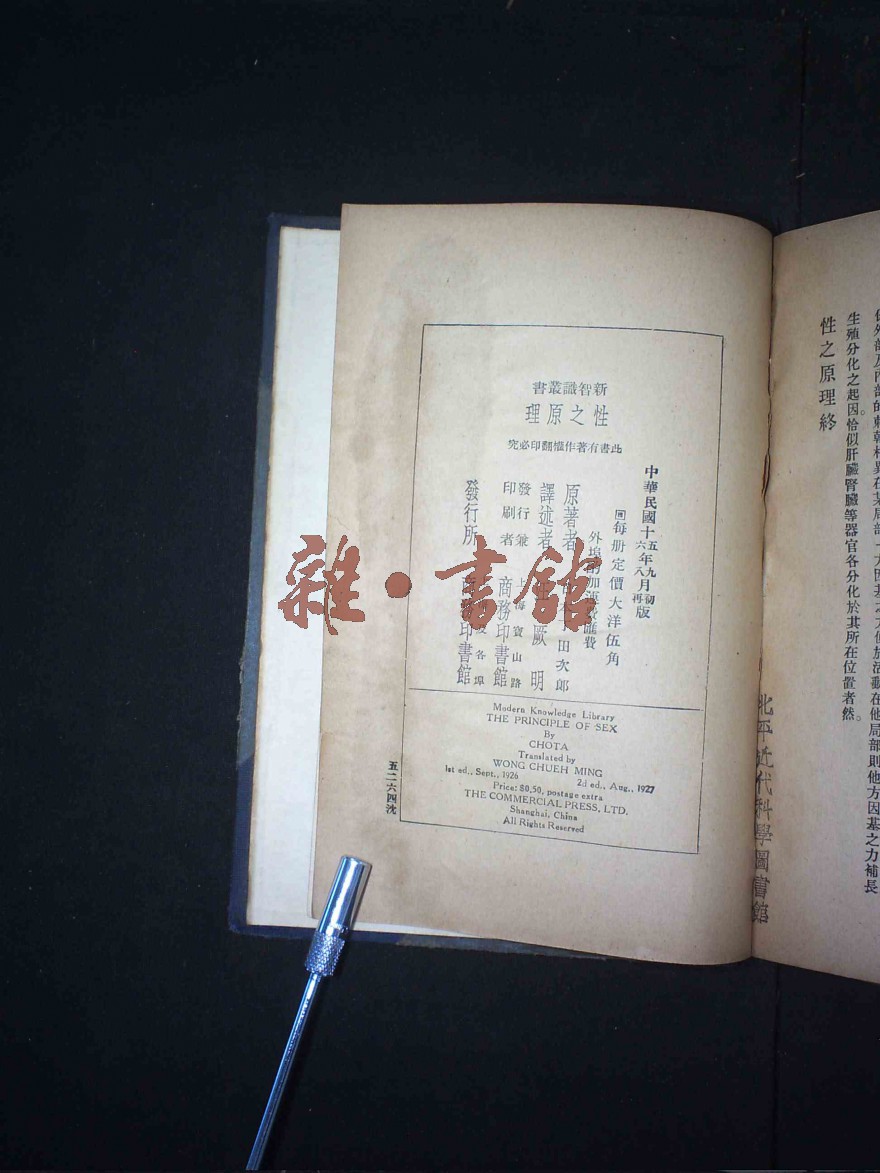 生殖分化之起因。恰似肝臟腎臟等器官各分化於其所在位置者然。
性之原理終
北平近代科學圖書館
新智識叢書
性之原理
此書有著作權翻印必究
中華民國十五年九月初版
六年八月再
每册定價大洋伍角
外埠酌加運費匯費
原著者 田次郎
譯述者 厥明
發行兼印刷者 上海寶山路 商務印書館
發行所 各埠 商務印書館
Modern Knowledge Library
THE PRINCIPLE OF SEX
By
CHOTA
Translated by
WONG CHUEH MING
1st ed., Sept., 1926 2d ed., Aug., 1927
Price: $0.50, postage extra
THE COMMERCIAL PRESS, LTD.
Shanghai, China
All Rights Reserved
五二六四沈
雜·書館